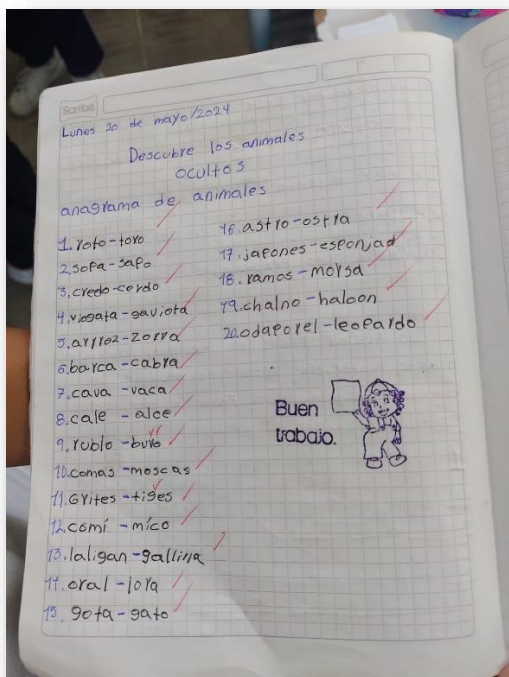 Scribe
Lunes 20 de mayo/2024
Descubre los animales
ocultos
anagrama de animales
1. roto-toro
2. sopa-sapo
3. credo-cerdo
4. viogata-gaviota
5. arroz-zorra
6. barca-cabra
7. cava-vaca
8. cale-alce
9. rublo-buro
10. comas-moscas
11. Grites-tiges
12. comí-mico
13. laligan-gallina
14. oral-lora
15. gota-gato
16. astro-ostra
17. japones-esponjad
18. ramos-morsa
19. chalno-haloon
20. odaporel-leopardo
Buen
trabajo.